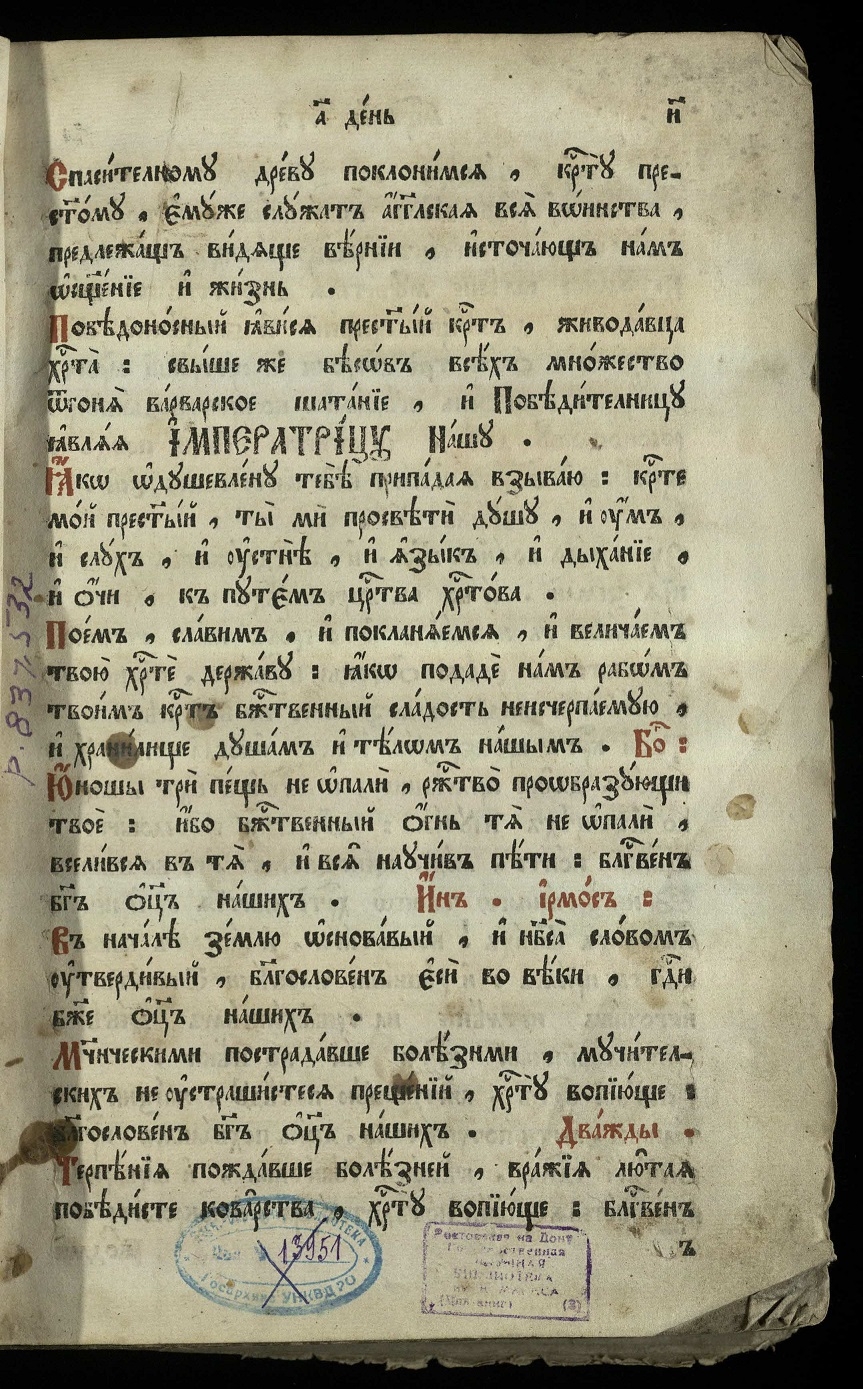 а҃ де́нь и҃
Спаси́телному дре́ву поклони́мся , кр҇ту пре-
ст҃о́му , є҆му́же слу́жатъ а҆́гг҃лская всѧ̀ вѡ́инства ,
предлежа́щъ ви́дѧще вѣ́рнїи , и҆сточа́ющъ на́мъ
ѡ҆сщ҃е́нїе и҆ жи́знь .
Побѣдоно́сный ꙗ҆ви́сѧ прест҃ы́й кр҇тъ , живода́вца
хр҇та̀ : свы́ше же бѣсѡ́въ всѣ́хъ мно́жество
ѿгонѧ̀ ва́рварское шата́нїе , и҆ Побѣди́телницу
ꙗ҆влѧ́ѧ І҆МПЕРАТРІ́ЦУ На́шу .
Ꙗ҆́кѡ ѡ҆душевле́ну тебѣ̀ припа́дая взыва́ю : кр҇те
мо́й прест҃ы́й , ты̀ мѝ просвѣтѝ ду́шу , и҆ ᲂу҆́мъ ,
и҆ слу́хъ , и҆ ᲂу҆стнѣ̀ , и҆ ѧ҆зы́къ , и҆ дыха́нїе ,
и҆ ѻ҆́чи , къ путє́мъ цр҇тва хр҇то́ва .
Пое́мъ , сла́вимъ , и҆ покланѧ́емсѧ , и҆ велича́емъ
твою̀ хр҇тѐ держа́ву : ꙗ҆́кѡ подадѐ на́мъ рабѡ́мъ
твои́мъ кр҇тъ бж҇твенный сла́дость неисчерпа́емую ,
и҆ храни́лище душа́мъ и҆ тѣлѡ́мъ на́шымъ . Бо҇ :
Ю҆́ношы трѝ пе́щь не ѡ҆палѝ , рж҇тво̀ проѡбразу́ющи
твоѐ : и҆́бо бж҇твенный ѻ҆́гнь тѧ̀ не ѡ҆палѝ ,
всели́всѧ въ тѧ̀ , и҆ всѧ̑ научи́въ пѣ́ти : блг҇ве́нъ
бг҃ъ ѻ҆ц҃ъ на́шихъ . И҆н҃ъ . і҆рмо́съ :
Въ нача́лѣ зе́млю ѡ҆снова́вый , и҆ нб҃са̀ сло́вомъ
ᲂу҆тверди́вый , бл҃гослове́нъ є҆сѝ во вѣ́ки , гд҇и
бж҃е ѻ҆ц҃ъ на́шихъ .
Мч҃ническими пострада́вше болѣ́зньми , мучи́тел-
скихъ не ᲂу҆страши́стеся преще́нїй , хр҇ту̀ вопїю́ще :
бл҃гослове́нъ бг҃ъ ѻ҆ц҃ъ на́шихъ . Два́жды .
Терпѣ́нїя пожда́вше болѣ́зней , вра́жїя лю̑тая
побѣди́сте кова̑рства , хр҇ту̀ вопїю́ще : блг҇ве́нъ
ъ
р. 837532
13951
Госархив УНКВД РО
Ростовская на Дону
библиотека